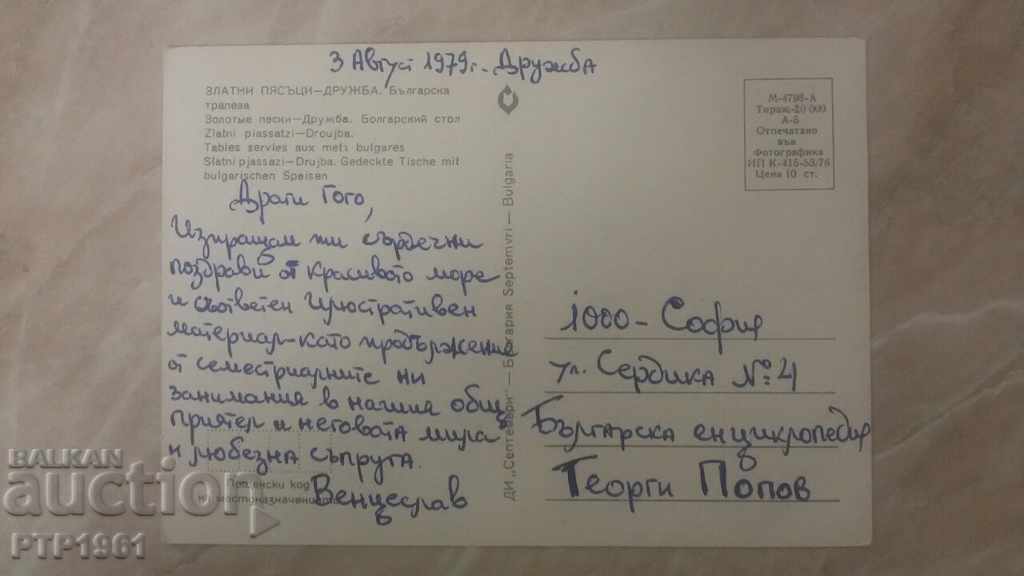 3 Август 1979г. Дружба
ЗЛАТНИ ПЯСЪЦИ—ДРУЖБА. Българска
трапеза
Золотые пески—Дружба. Болгарский стол
Zlatni piassatzi—Droujba.
Tables servies aux mets bulgares
Slatni pjassazi—Drujba. Gedeckte Tische mit
bulgarischen Speisen
Драги Гого,
Изпращам ти сърдечни
поздрави от красивото море
и съответен илюстративен
материал-като продължение
от семестриалните ни
занимания в нашия общ
приятел и неговата мила
и любезна съпруга.
Венцеслав
Пощенски код
на местоназначението
ДИ „Септември" — България Septemvri — Bulgaria
М-4798-А
Тираж-20 000
А-6
Отпечатано
във
Фотографика
ИП К-415-53/76
Цена 10 ст.
1000 - София
ул. Сердика №: 4
Българска енциклопедия
Георги Попов
BALKAN
auction
PTP1961